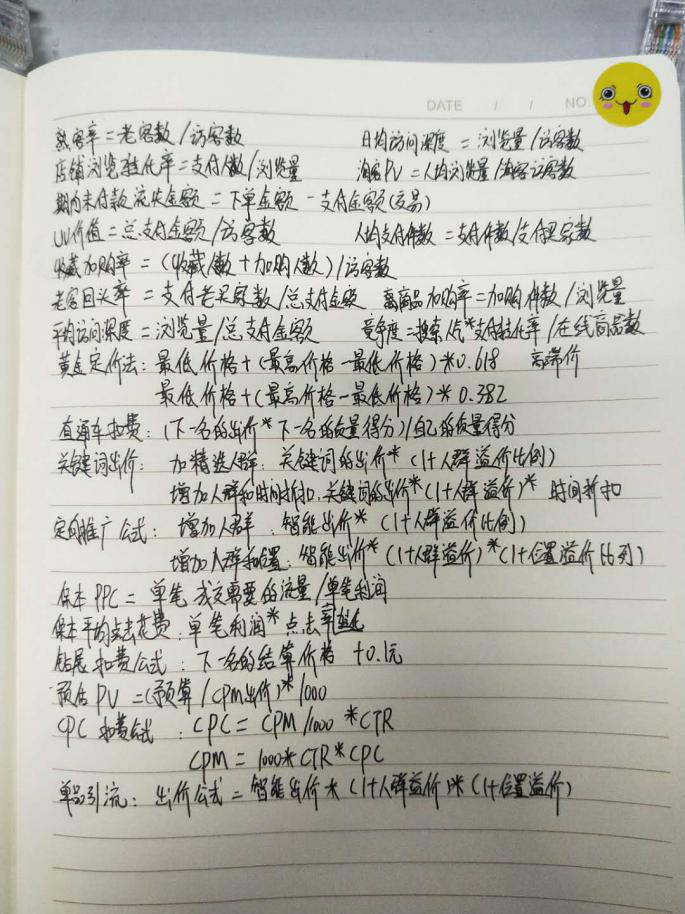 DATE / / NO.
熟客率=老客数/访客数 日均访问深度=浏览量/访客数
店铺浏览转化率=支付人数/浏览量 淘客PV=人均浏览量/淘客访客数
期内未付款流失金额=下单金额-支付金额(交易)
UV价值=总支付金额/访客数 人均支付件数=支付件数/支付买家数
收藏加购率=(收藏人数+加购人数)/访客数
老客回头率=支付老买家数/总支付金额 商品加购率=加购件数/浏览量
平均访问深度=浏览量/总支付金额 竞争度=搜索人气*支付转化率/在线商品数
黄金定价法:最低价格+(最高价格-最低价格)*0.618 高端价
最低价格+(最高价格-最低价格)*0.382
直通车扣费:(下一名的出价*下一名的质量得分)/自己的质量得分
关键词出价: 加精选人群:关键词的出价*(1+人群溢价比例)
增加人群和时间折扣:关键词的出价*(1+人群溢价)*时间折扣
定向推广公式: 增加人群:智能出价*(1+人群溢价比例)
增加人群和位置:智能出价*(1+人群溢价)*(1+位置溢价比例)
保本PPC=单笔成交需要的流量/单笔利润
保本平均点击花费:单笔利润*点击率
钻展扣费公式:下一名的结算价格+0.1元
预估PV=(预算/CPM出价)*1000
CPC扣费公式:CPC=CPM/1000*CTR
CPM=1000*CTR*CPC
单品引流:出价公式=智能出价*(1+人群溢价)*(1+位置溢价)